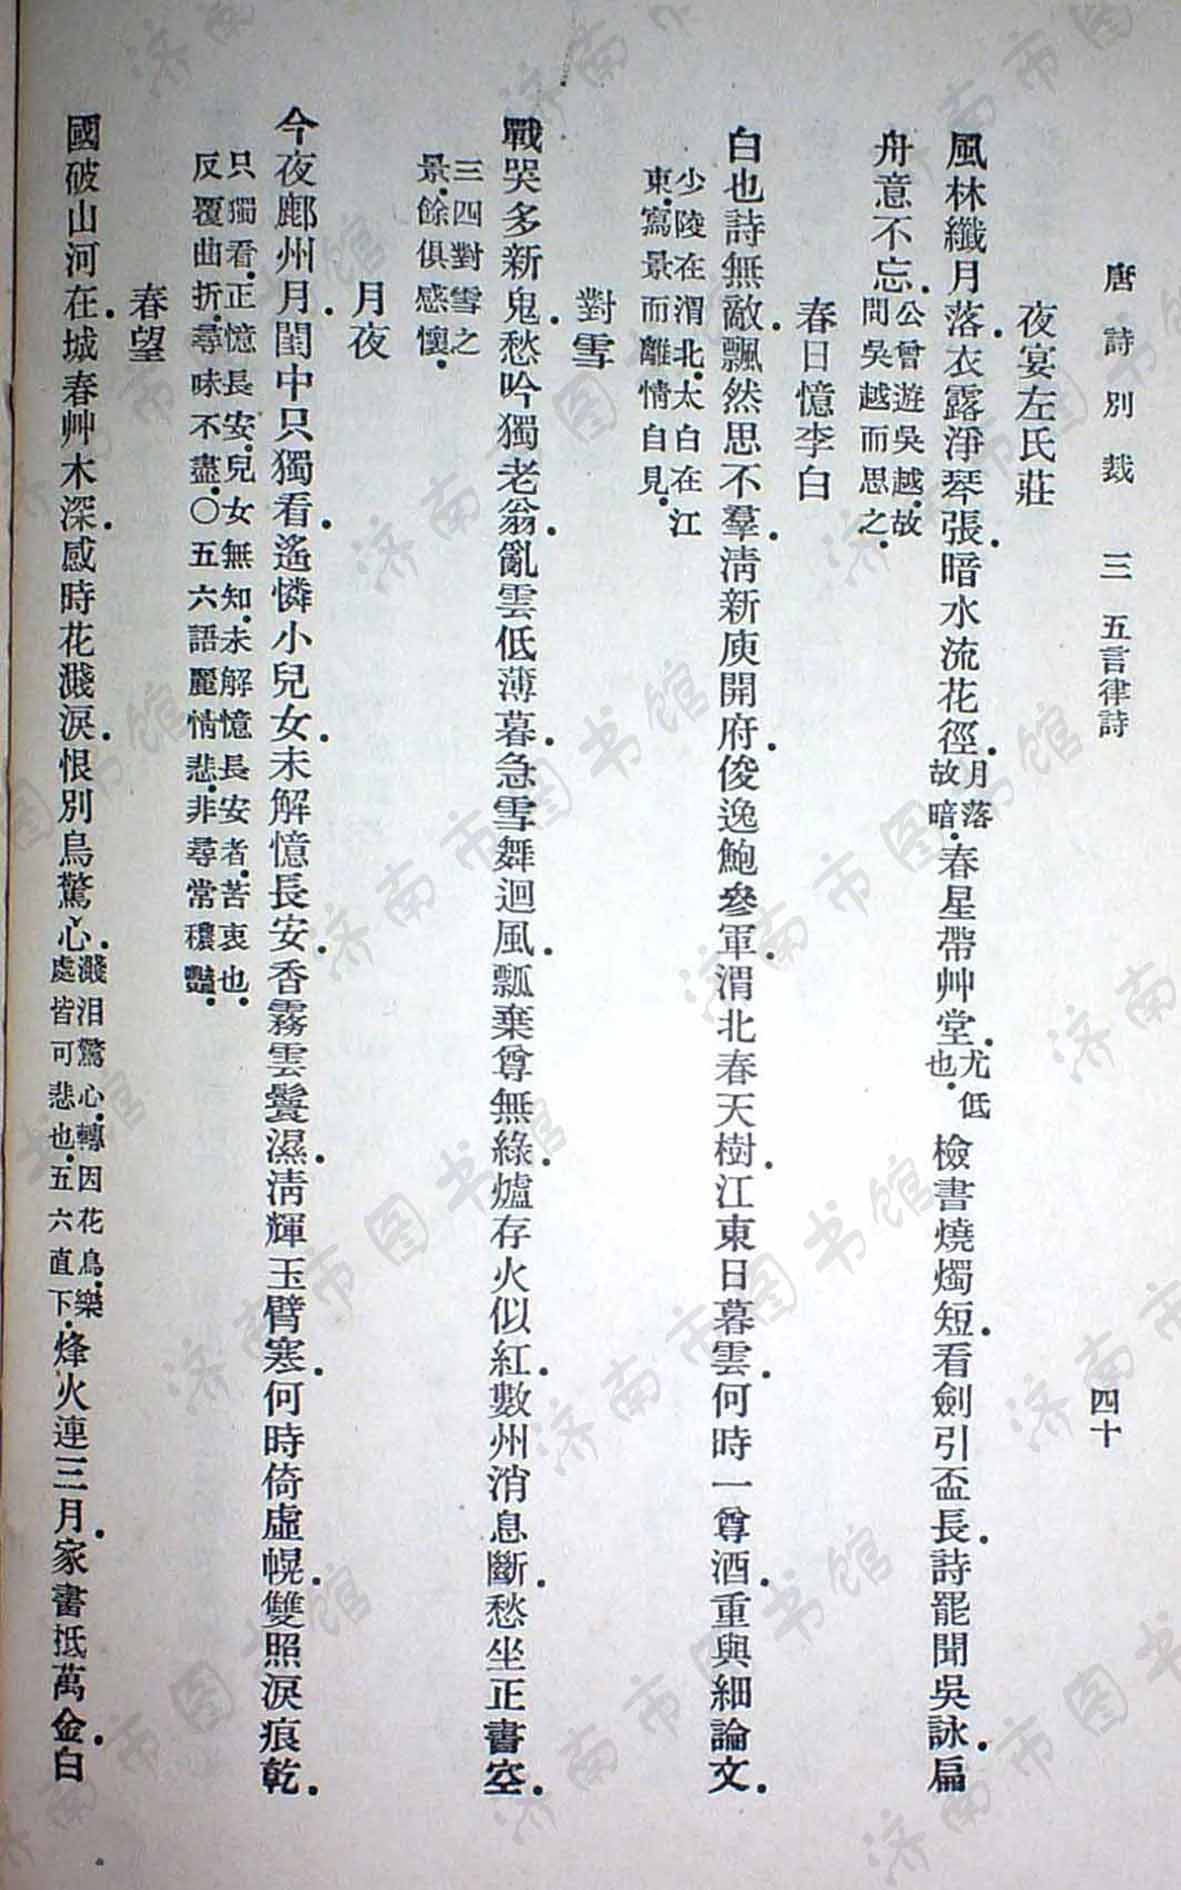 唐詩別裁 三 五言律詩 四十
夜宴左氏莊
風林纖月落.衣露淨琴張.暗水流花徑.月落故暗.春星帶艸堂.尤低也.檢書燒燭短.看劍引盃長.詩罷聞吳詠.扁
舟意不忘.公曾遊吳越.故問吳越而思之.
春日憶李白
白也詩無敵.飄然思不羣.清新庾開府.俊逸鮑參軍.渭北春天樹.江東日暮雲.何時一尊酒.重與細論文.
少陵在渭北.太白在江東.寫景而離情自見.
對雪
戰哭多新鬼.愁吟獨老翁.亂雲低薄暮.急雪舞迴風.瓢棄尊無綠.爐存火似紅.數州消息斷.愁坐正書空.
三四對雪之景.餘俱感懷.
月夜
今夜鄜州月.閨中只獨看.遙憐小兒女.未解憶長安.香霧雲鬟濕.清輝玉臂寒.何時倚虛幌.雙照淚痕乾.
只獨看.正憶長安.兒女無知.未解憶長安者.苦衷也.反覆曲折.尋味不盡.○五六語麗情悲.非尋常穠豔.
春望
國破山河在.城春艸木深.感時花濺淚.恨別鳥驚心.濺泪驚心.轉因花鳥.樂處皆可悲也.五六直下.烽火連三月.家書抵萬金.白
济南市图书馆